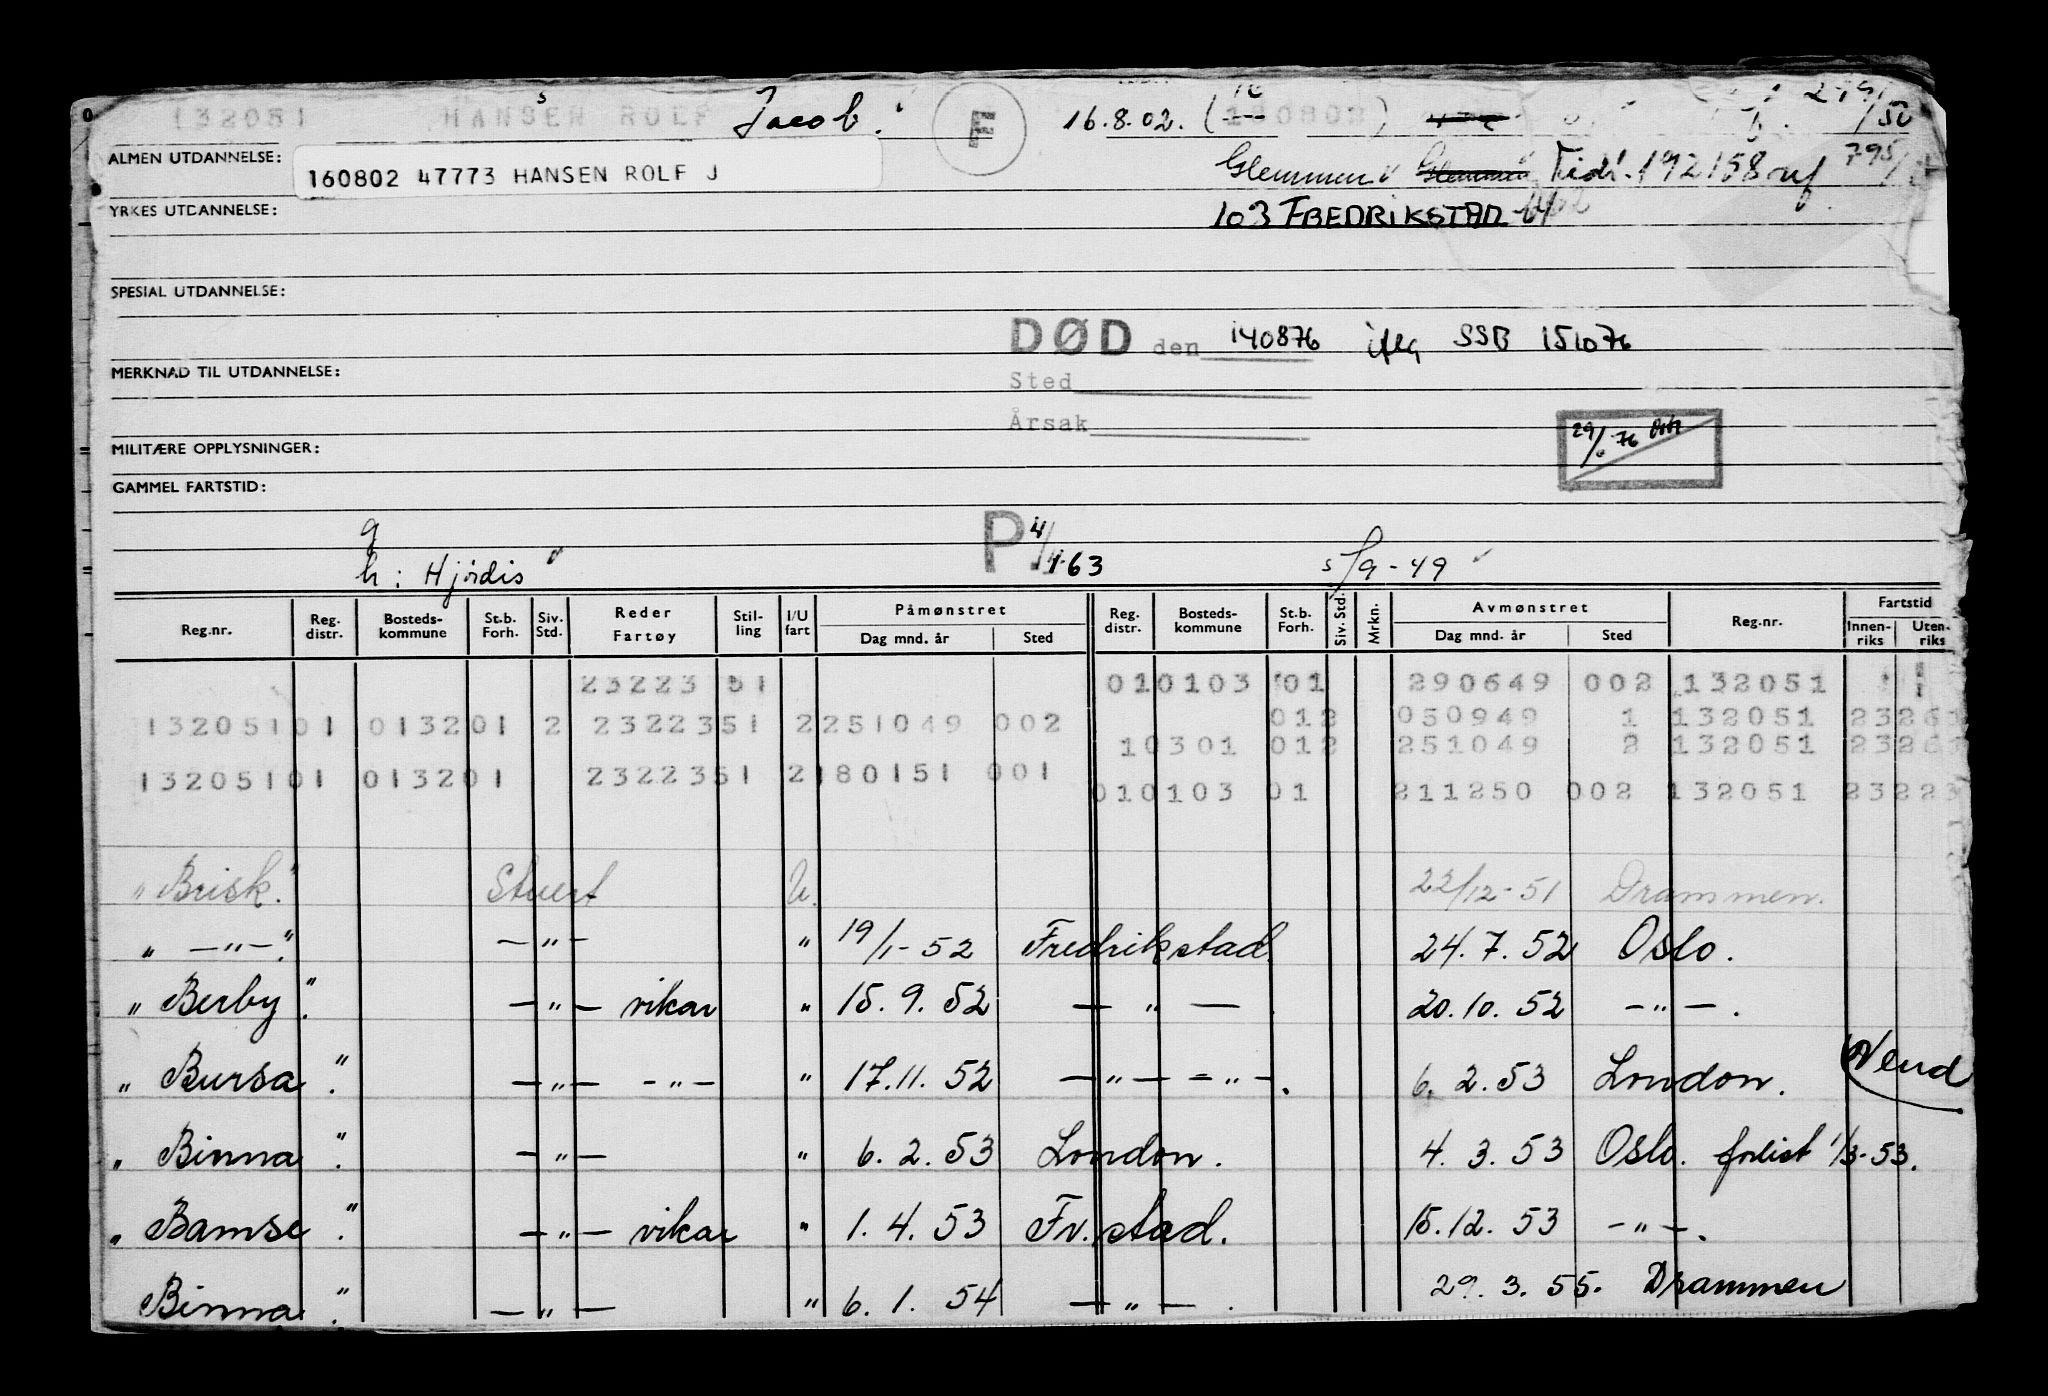 132051 HANSEN ROLF Jacob. F 16.8.02. (180802) /50
ALMEN UTDANNELSE: 160802 47773 HANSEN ROLF J Glemmen Glemmen Tidl. 192158 795/
YRKES UTDANNELSE: 103 FREDRIKSTAD
SPESIAL UTDANNELSE:
DØD den 140876 iflg SSB 151076
MERKNAD TIL UTDANNELSE: Sted
Årsak
MILITÆRE OPPLYSNINGER: 29/ 76
GAMMEL FARTSTID:
g
h: Hjørdis P 63 5/9-49
Reg.nr. Reg. distr. Bosteds-kommune St.b. Forh. Siv. Std. Reder Fartøy Stil-ling I/U fart Påmønstret Dag mnd. år Sted Reg. distr. Bosteds-kommune St.b. Forh. Siv. Std. Mrkn. Avmønstret Dag mnd. år Sted Reg.nr. Fartstid Innen-riks Uten-riks
23223 51 010103 01 290649 002 132051
132051 01 013201 2 2322351 2251049 002 012 050949 1 132051 23261
10301 012 251049 2 132051 23261
132051 01 013201 2322351 2180151 001 010103 01 211250 002 132051 23223
"Brisk." Stuert U. 22/12-51 Drammen.
" —"—." —"— " 19/1-52 Fredrikstad. 24.7.52 Oslo.
"Berby." —"— vikar " 15.9.52 —"— . 20.10.52 —"—.
"Bursa." —"— -"- " 17.11.52 —"— -"-. 6.2.53 London. Vend
"Binna." —"— " 6.2.53 London. 4.3.53 Oslo. forlist 1/3-53.
"Bamse." —"— vikar " 1.4.53 Fr.stad. 15.12.53 —"—.
Binna." —"— " 6.1.54 —"— . 29.3.55. Drammen